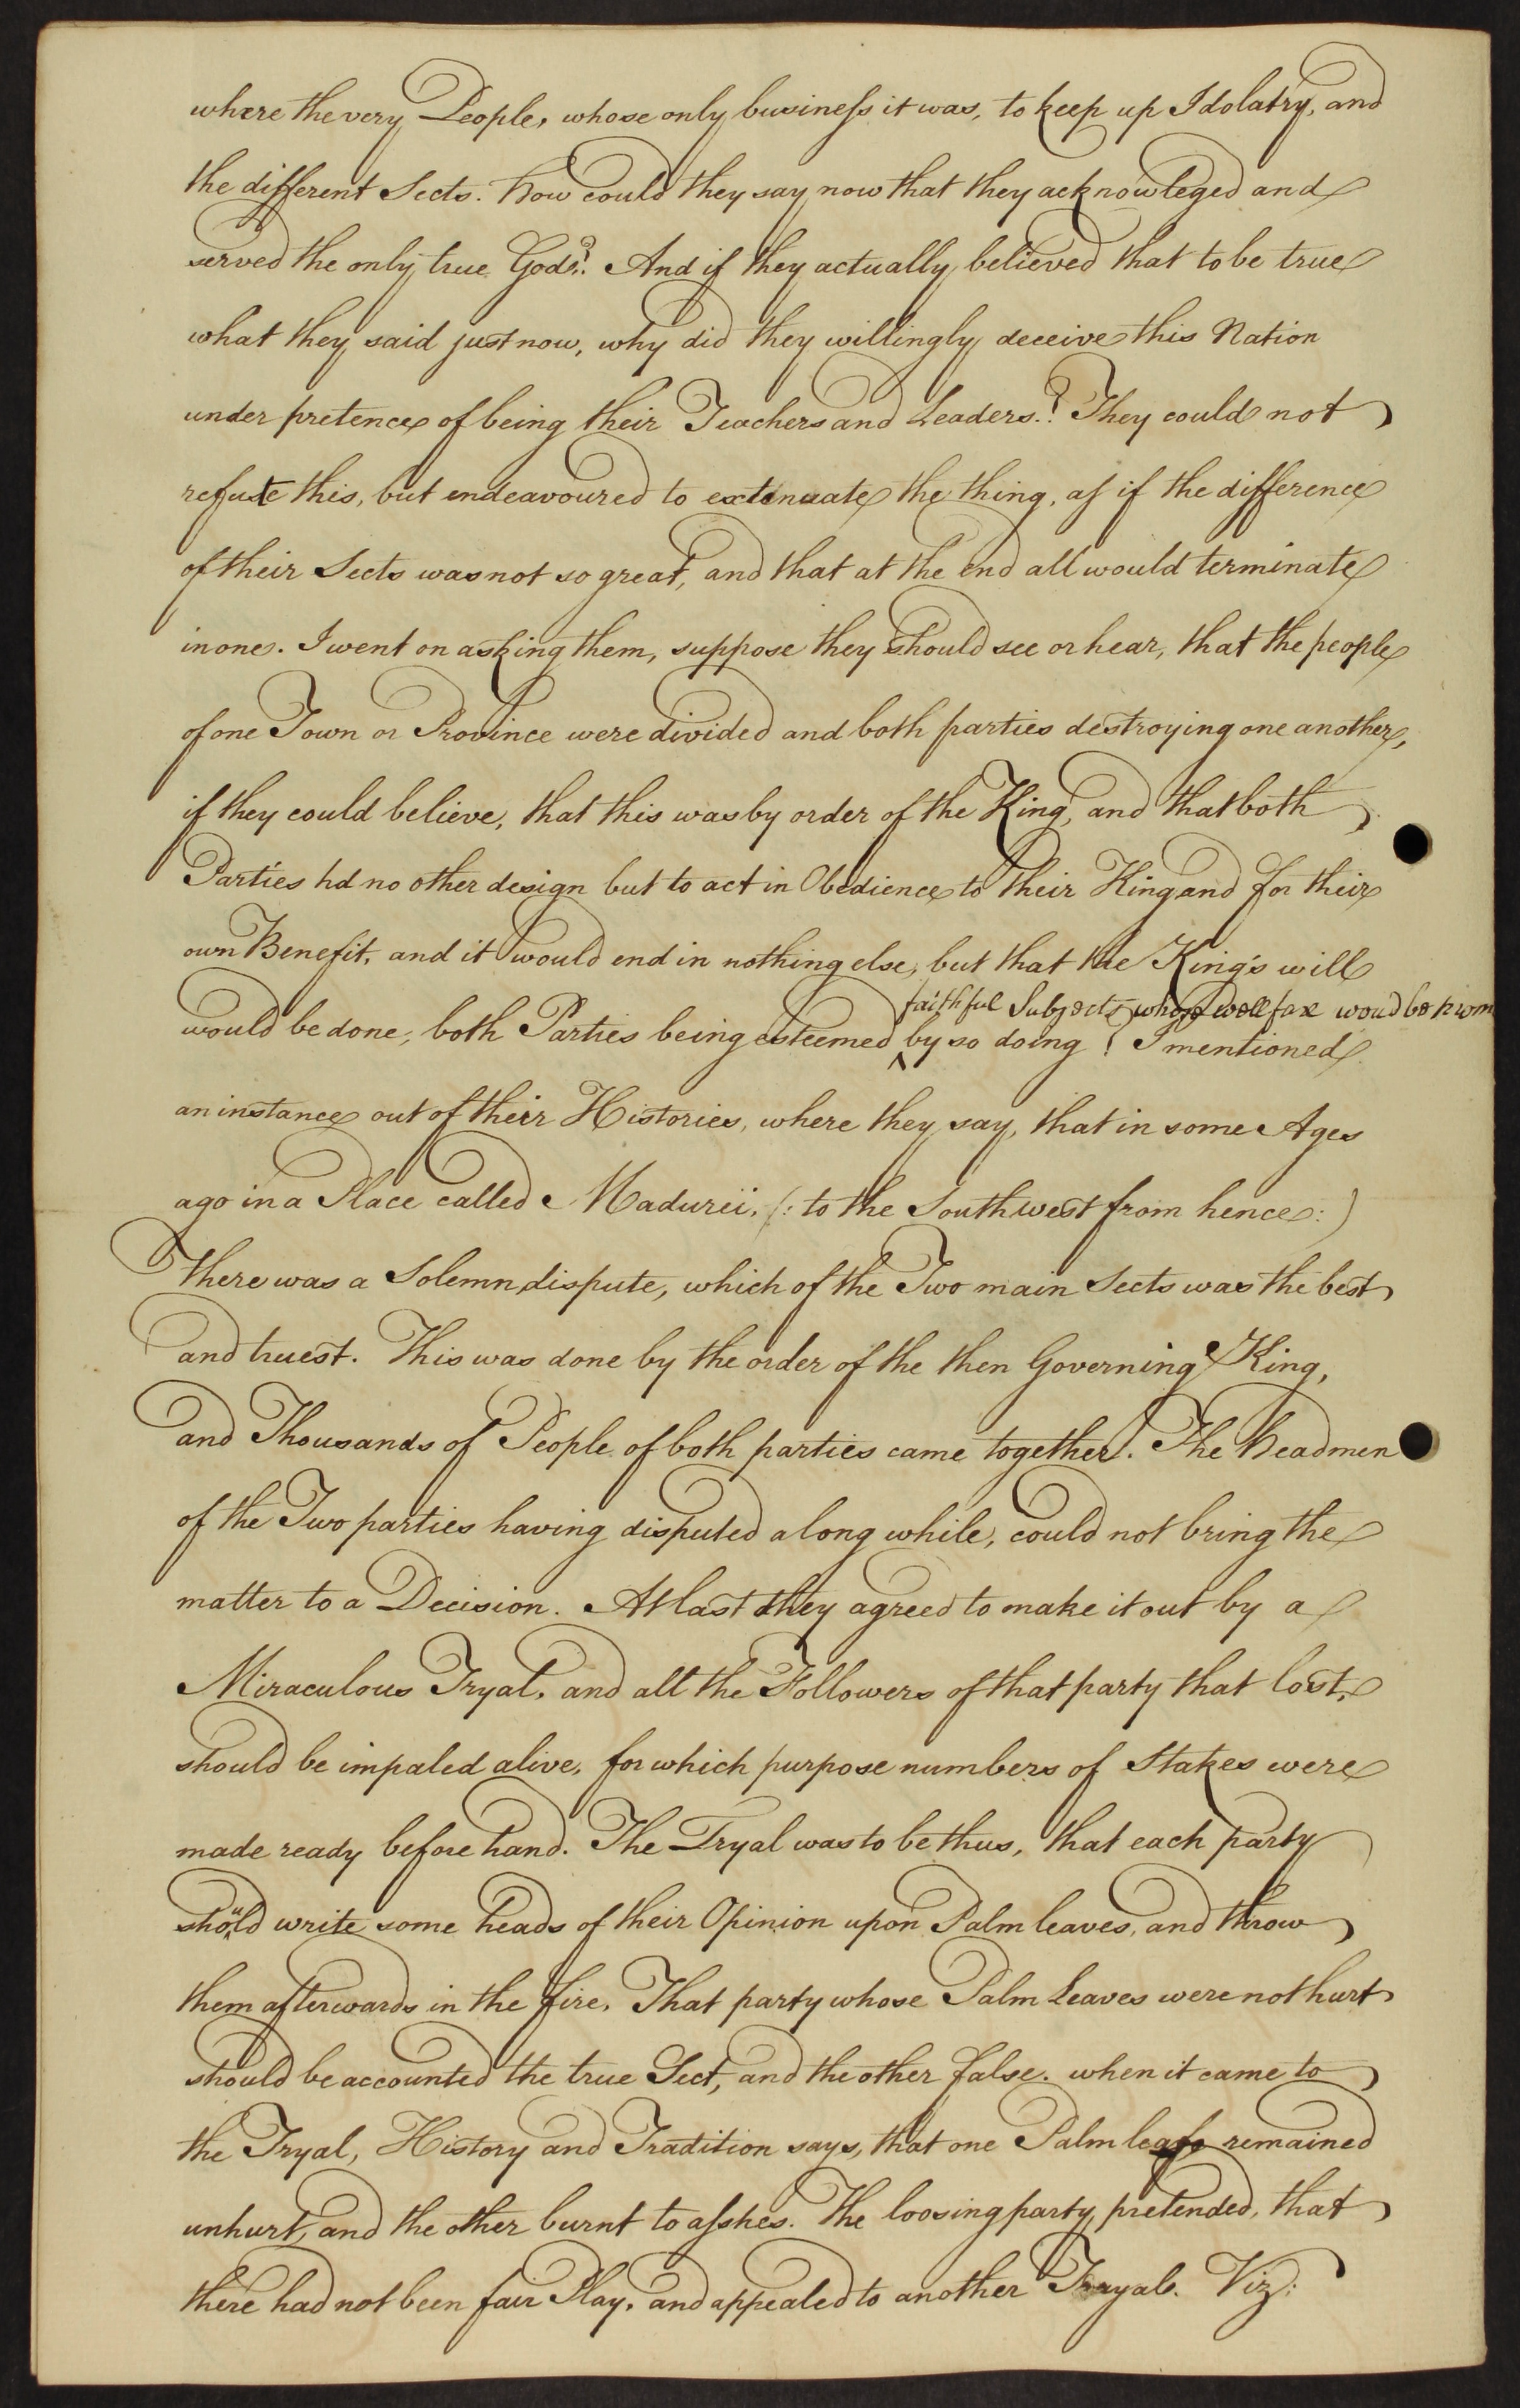 where the very People, whose only businefs it was, to keep up Idolatry, and
the different Sects. how could they say now that they acknowleged and
served the only true God? And if they actually believed that to be true
what they said just now, why did they willingly deceive this Nation
under pretence of being their Teachers and Leaders.? They could not
refute this, but endeavoured to extenuate the thing, as if the difference
of their Sects was not so great, and that at the end all would terminate
in one. I went on asking them, suppose they should see or hear, that the people
of one Town or Province were divided and both parties destroying one another,
if they could believe, that this was by order of the King, and that both
Parties hd no other design but to act in Obedience to their King and for their
own Benefit, and it would end in nothing else, but that the King's will
faithful Subjects whose wellfare woud be
would be done, both Parties being esteemed by so doing? I mentioned
an instance out of their Histories, where they say, that in some Ages
ago in a Place called Madureii, (: to the Southwest from hence:)
There was a Solemn dispute, which of the Two main Sects was the best
and truest. This was done by the order of the then Governing King,
and Thousands of People of both parties came together. The Headmen
of the Two parties having disputed a long while, could not bring the
matter to a Decision. At last they agreed to make it out by a
Miraculous Tryal, and all the Followers of that party that lost,
should be impaled alive, for which purpose numbers of Stakes were
made ready before hand. The Tryal was to be thus, that each party
should write some heads of their Opinion upon Palm leaves, and throw
them afterwards in the fire, That party whose Palm Leaves were not hurt
should be accounted the true Sect, and the other false. when it came to
the Tryal, History and Tradition says, that one Palm leafe remained
unhurt, and the other burnt to afshes. The loosing party pretended, that
there had not been fair Play, and appealed to another Tryal. Viz: